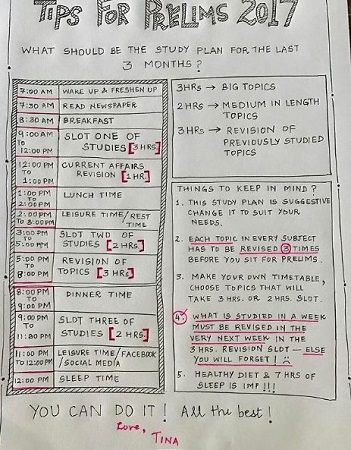 TIPS FOR PRELIMS 2017
WHAT SHOULD BE THE STUDY PLAN FOR THE LAST
3 MONTHS?
7:00 AM WAKE UP & FRESHEN UP
7:30 AM READ NEWSPAPER
8:30 AM BREAKFAST
9:00 AM TO 12:00 PM SLOT ONE OF
STUDIES [3 HRS]
12:00 PM TO 1:00 PM CURRENT AFFAIRS
REVISION [1 HR]
1:00 PM 2:00 PM LUNCH TIME
2:00 PM TO 3:00 PM LEISURE TIME / REST
TIME
3:00 PM TO 5:00 PM SLOT TWO OF
STUDIES [2 HRS]
5:00 PM TO 8:00 PM REVISION OF
TOPICS [3 HRS]
8:00 PM TO 9:00 PM DINNER TIME
9:00 PM TO 11:30 PM SLOT THREE OF
STUDIES [2 HRS]
11:00 PM TO 12:00 PM LEISURE TIME / FACEBOOK
/ SOCIAL MEDIA
12:00 PM SLEEP TIME
3HRS → BIG TOPICS
2HRS → MEDIUM IN LENGTH
TOPICS
3HRS → REVISION OF
PREVIOUSLY STUDIED
TOPICS
THINGS TO KEEP IN MIND?
1. THIS STUDY PLAN IS SUGGESTIVE
CHANGE IT TO SUIT YOUR
NEEDS.
2. EACH TOPIC IN EVERY SUBJECT
HAS TO BE REVISED 3 TIMES
BEFORE YOU SIT FOR PRELIMS.
3. MAKE YOUR OWN TIMETABLE,
CHOOSE TOPICS THAT WILL
TAKE 3 HRS. OR 2 HRS. SLOT.
4. WHAT IS STUDIED IN A WEEK
MUST BE REVISED IN THE
VERY NEXT WEEK IN THE
3 HRS. REVISION SLOT — ELSE
YOU WILL FORGET!
5. HEALTHY DIET & 7 HRS OF
SLEEP IS IMP!!!
YOU CAN DO IT! All the best!
Love,
TINA